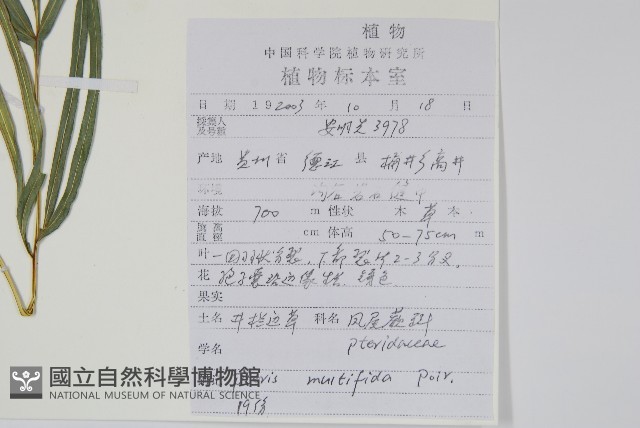 植物
中国科学院植物研究所
植物标本室
日期 19 2003 年 10 月 18 日
採集人及号数 安明态 3978
产地 贵州 省 德江 县 桶井乡高井
环境
海拔 700 m 性状 木 草 本
胸高直径 cm 体高 50-75cm m
叶 一回羽状分裂，下部裂片2-3分叉，
花 孢子囊沿边缘生 锈色
果实
土名 井栏边草 科名 凤尾蕨科
学名 Pteridaceae
multifida Poir.
19份
國立自然科學博物館
NATIONAL MUSEUM OF NATURAL SCIENCE